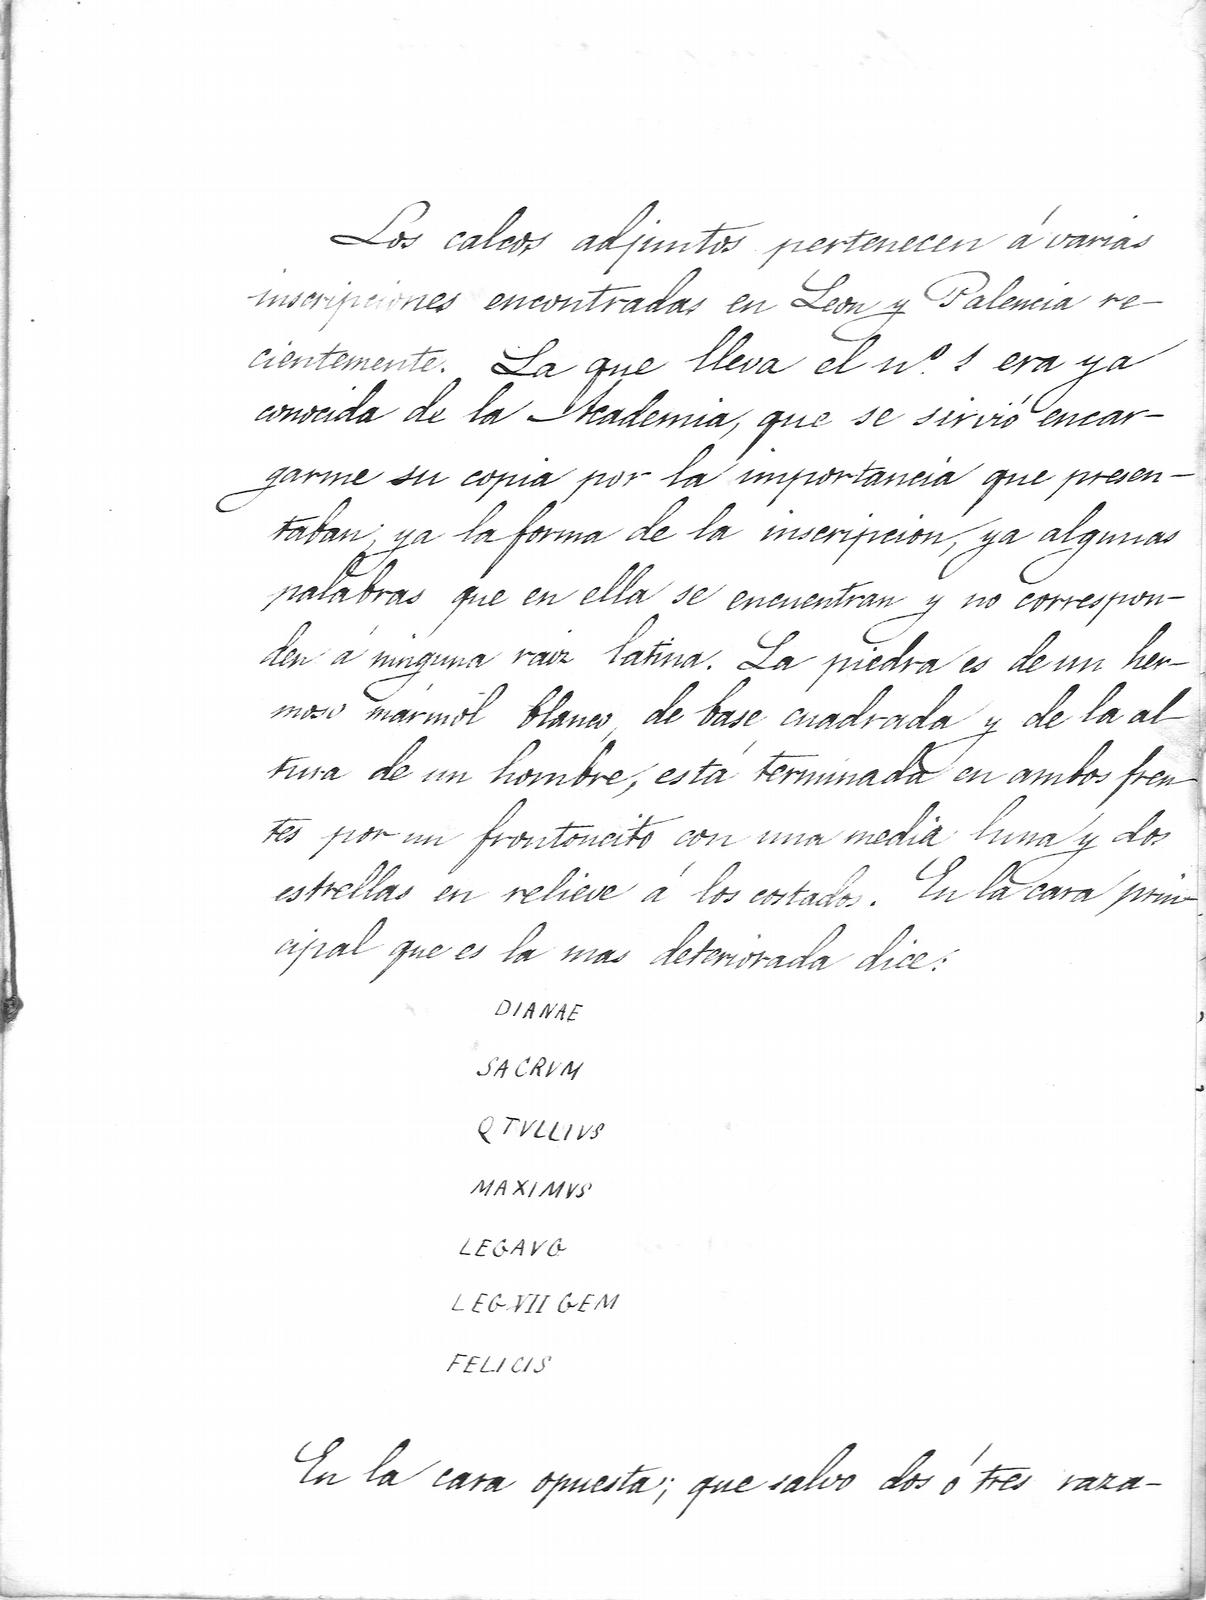 Los calcos adjuntos pertenecen á varias
inscripciones encontradas en Leon y Palencia re-
cientemente. La que lleva el nº 1 era ya
conocida de la Academia, que se sirvió encar-
garme su copia por la importancia que presen-
taban; ya la forma de la inscripcion, ya algunas
palabras que en ella se encuentran y no correspon-
den á ninguna raiz latina. La piedra es de un her-
moso mármol blanco, de base cuadrada y de la al
tura de un hombre, está terminada en ambos fren
tes por un frontoncito con una media luna y dos
estrellas en relieve á los costados. En la cara prin-
cipal que es la mas deteriorada dice:
DIANAE
SACRVM
Q TVLLIVS
MAXIMVS
LEGAVG
LEG VII GEM
FELICIS
En la cara opuesta; que salvo dos ó tres raza-